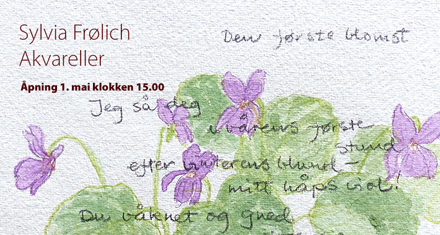 Sylvia Frølich
Akvareller
Åpning 1. mai klokken 15.00
Den første blomst
Jeg så deg
i vårens første
stund
efter vinterens blund –
mitt håps viol!
Du våknet og gned